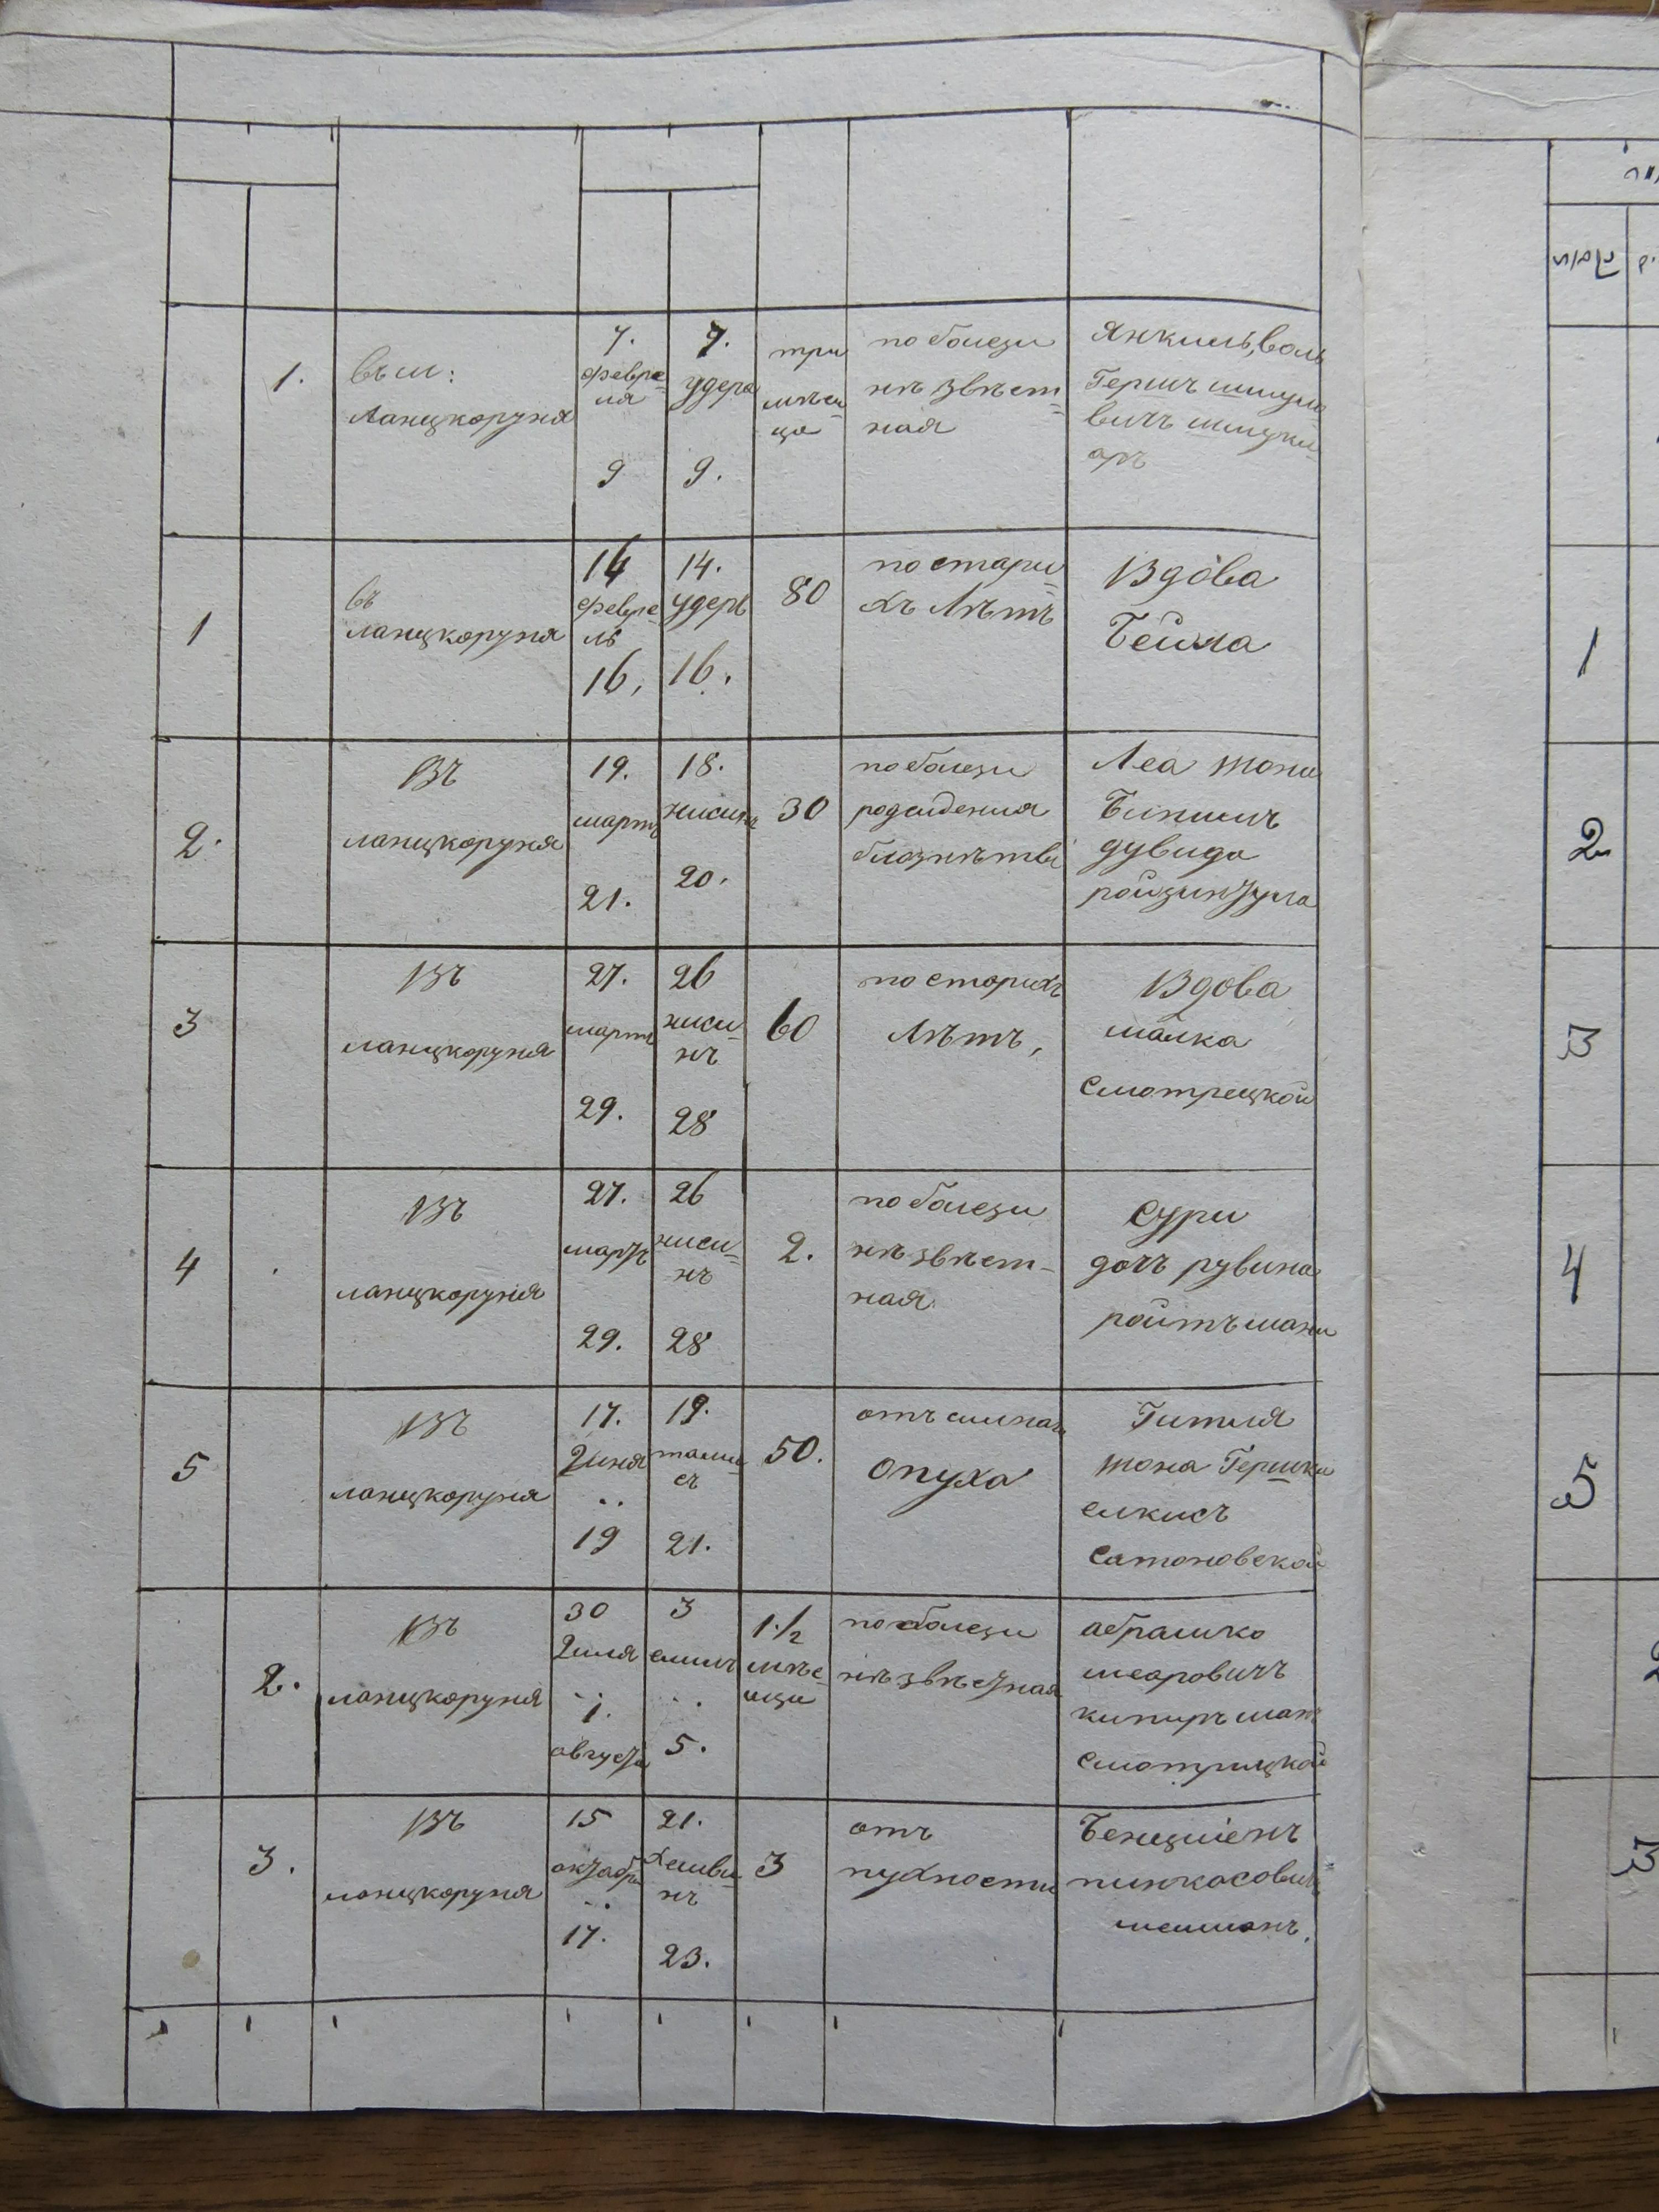 1.
въ м:
Ланцкоруня
7.
февре=
ля
9
7.
удеръ
9.
три
мѣся=
ца
по болези
нѣ звѣст=
ная
Янкиль,Воль
Гершъ шмуле=
вичъ
аръ
1
въ
ланцкоруня
14
февре=
ль
16,
14.
удеръ
16.
80
по стари=
хъ Лѣтъ
Вдова
Бейла
2.
Въ
ланцкоруня
19.
мартъ
21.
18.
нисинъ
20.
30
по болези
рождения
Леа жона
дувида
3
Въ
ланцкоруня
27.
мартъ
29.
26
ниси=
нъ
28
60
по старихъ
Лѣтъ,
Вдова
малка
Смотрецкой
4
Въ
ланцкоруня
27.
мартъ
29.
26
ниси=
нъ
28
2.
по болези
нѣ звѣст=
ная.
Сури
дочъ рувина
ройтъмани
5
Въ
ланцкоруня
17.
июня
19
19.
тами=
съ
21.
50.
отъ
опуха
Гитля
жона Гершки
елкисъ
Сатоновской
2.
Въ
ланцкоруня
30
июля
1.
августа
3
елилъ
5.
1.1/2
мѣся=
ца
по болези
нѣ звѣстная
абрашко
меаровичъ
Смотрицкой
3.
Въ
ланцкоруня
15
октабри
17.
21.
Хешви=
нъ
23.
3
отъ
пухности
Бенциенъ
пинкасовичъ
1
2
3
4
5
2
3